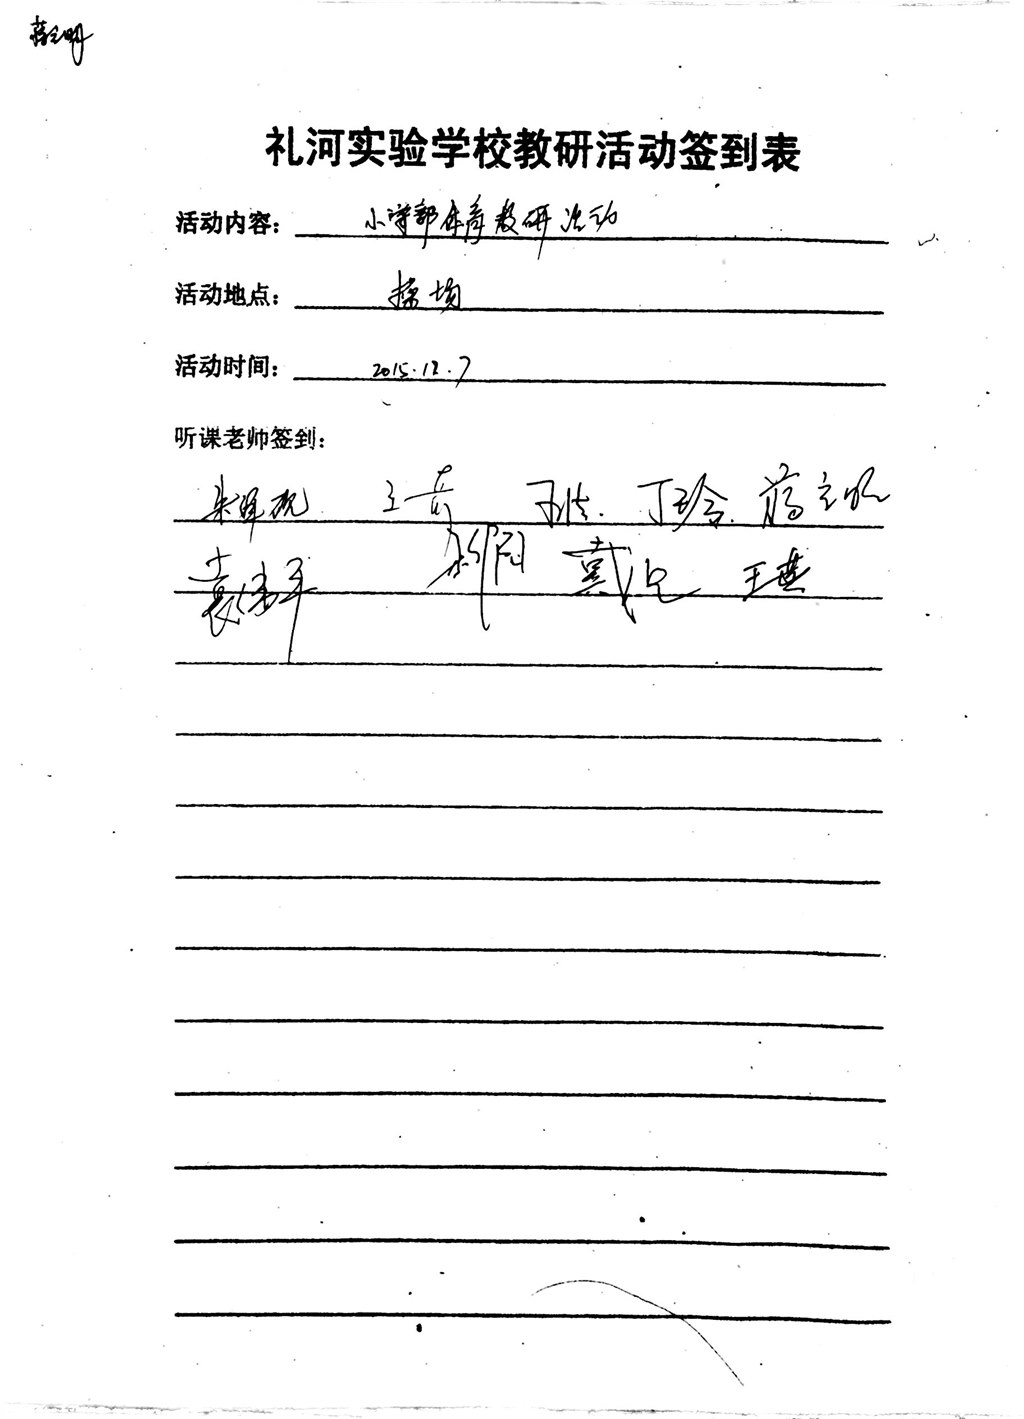 蒋立明
礼河实验学校教研活动签到表
活动内容： 小学部体育教研活动
活动地点： 操场
活动时间： 2015.12.7
听课老师签到：
王奇 丁玲 蒋立明
戴 王燕